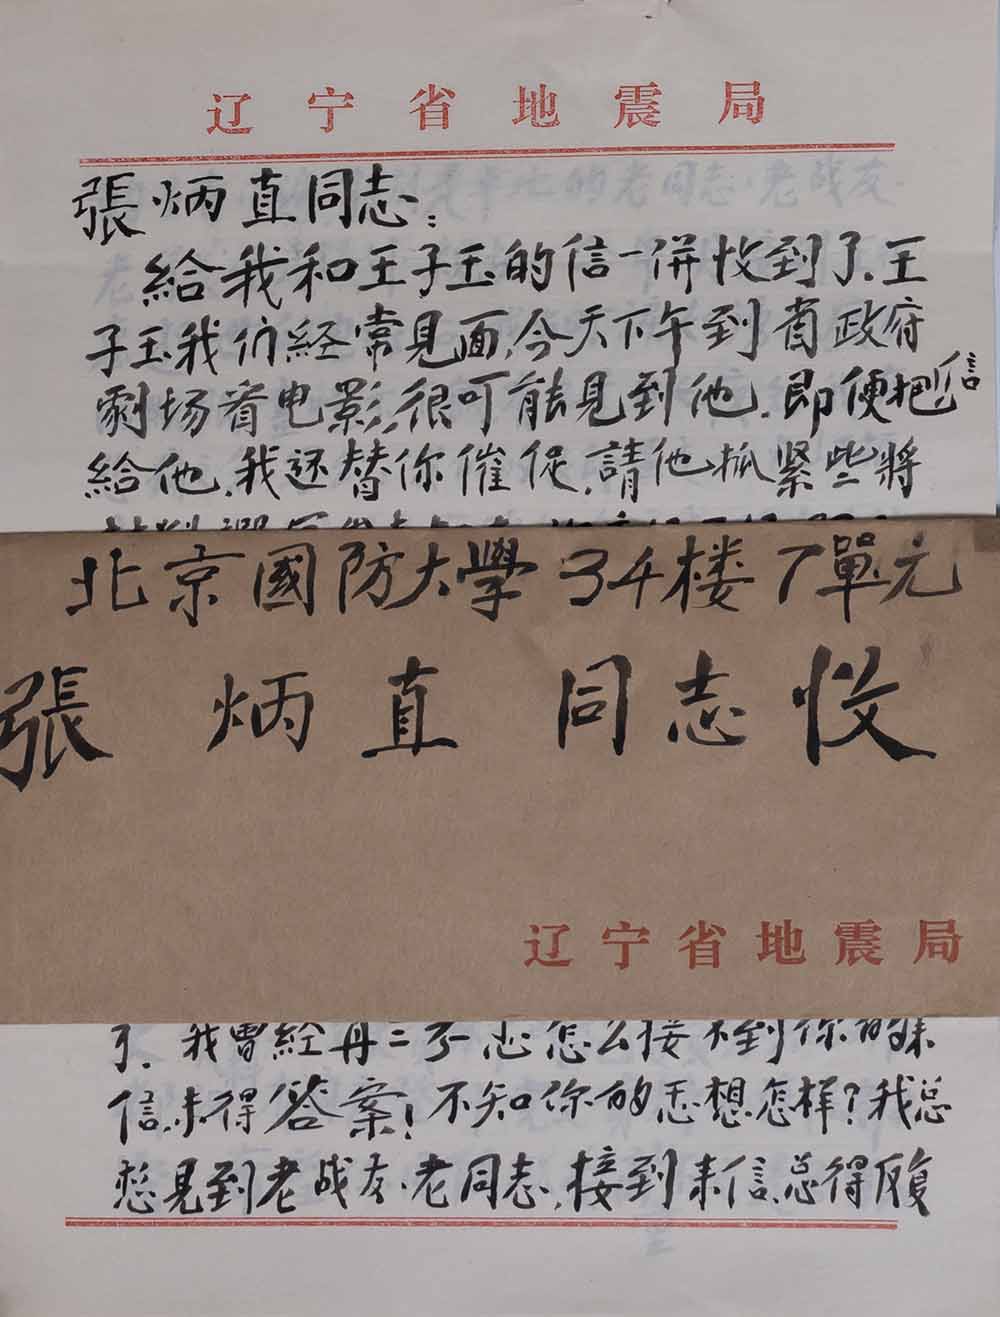 辽宁省地震局
張炳直同志：
給我和王子玉的信一併收到了.王
子玉我们经常見面,今天下午到省政府
劇场看电影,很可能見到他.即便把信
給他.我还替你催促,請他抓緊些將
北京國防大學34楼7單元
張炳直同志收
辽宁省地震局
了.我曾經再三不怎么接不到你的来
信,未得答案!不知你的思想怎样?我总
想見到老战友.老同志,接到来信,总得反复